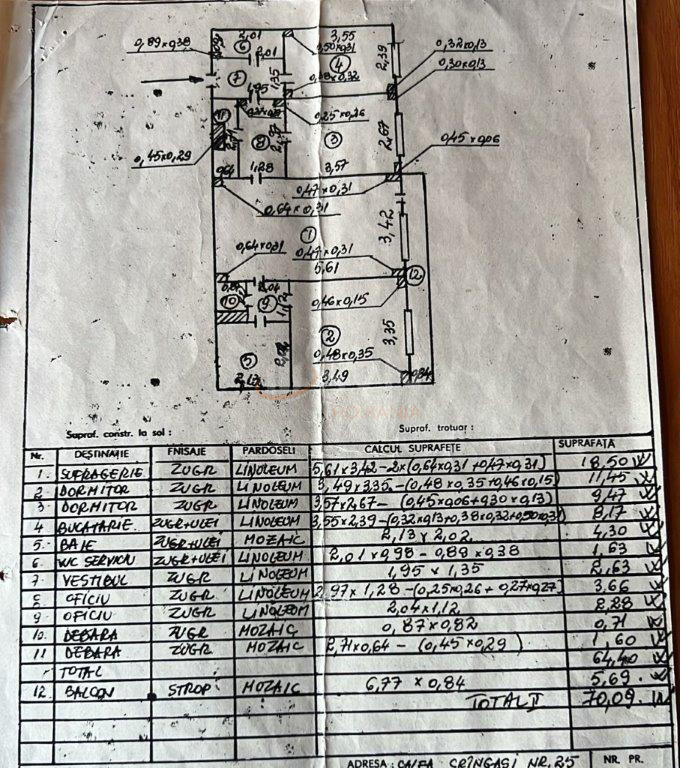 2,01
3,55
0,89×0,38
6
3,50×0,31
2,01
4
2,39
0,32×0,13
7
1,35
0,38×0,32
0,30×0,13
1,95
0,25×0,26
11
8
3
2,67
0,45×0,06
0,45×0,29
0,64
1,28
3,57
0,47×0,31
0,64×0,31
1
3,42
0,64×0,31
0,47×0,31
5,61
12
0,87
2,04
10
9
1,12
0,46×0,15
2
3,35
5
2,02
0,48×0,35
2,13
3,49
0,84
Supraf. constr. la sol :
Supraf. trotuar :
Nr. DESTINAȚIE FNISAJE PARDOSELI CALCUL SUPRAFEȚE SUPRAFAȚĂ
1. SUFRAGERIE ZUGR LINOLEUM 5,61×3,42-2×(0,64×0,31+0,47×0,31) 18,50
2 DORMITOR ZUGR LINOLEUM 3,49×3,35-(0,48×0,35+0,46×0,15) 11,45
3 DORMITOR ZUGR LINOLEUM 3,57×2,67-(0,45×0,06+0,30×0,13) 9,47
4 BUCATARIE ZUGR+ULEI LINOLEUM 3,55×2,39-(0,32×0,13+0,38×0,32+0,50×0,31) 8,17
5. BAIE ZUGR+ULEI MOZAIC 2,13×2,02 4,30
6 WC SERVICIU ZUGR+ULEI LINOLEUM 2,01×0,98-0,89×0,38 1,63
7 VESTIBUL ZUGR LINOLEUM 1,95×1,35 2,63
8 OFICIU ZUGR LINOLEUM 2,97×1,28-(0,25×0,26+0,27×0,27 3,66
9 OFICIU ZUGR LINOLEUM 2,04×1,12 2,28
10. DEBARA ZUGR MOZAIC 0,87×0,82 0,71
11 DEBARA ZUGR MOZAIC 2,71×0,64-(0,45×0,29) 1,60
TOTAL 64,40
12 BALCON STROP. MOZAIC 6,77×0,84 5,69
TOTAL II 70,09
ADRESA: CALEA CRINGASI NR. 25 NR. PR.